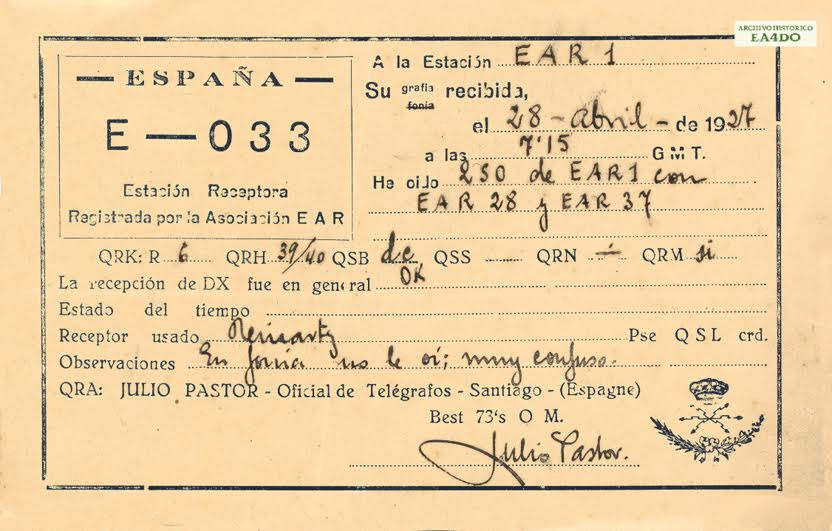 ARCHIVO HISTORICO
EA4DO
ESPAÑA
E — 033
Estación Receptora
Registrada por la Asociación E A R
A la Estación EAR 1
Su grafia recibida,
fonia
el 28 - Abril - de 1927
a las 7'15 G M T.
He oído 250 de EAR1 con
EAR 28 y EAR 37
QRK: R 6 QRH 39/40 QSB dc QSS QRN ÷ QRM si
La recepción de DX fue en general OK
Estado del tiempo
Receptor usado Reinartz Pse QSL crd.
Observaciones En fonia no le oí; muy confuso.
QRA: JULIO PASTOR - Oficial de Telégrafos - Santiago - (Espagne)
Best 73's O M.
Julio Pastor.